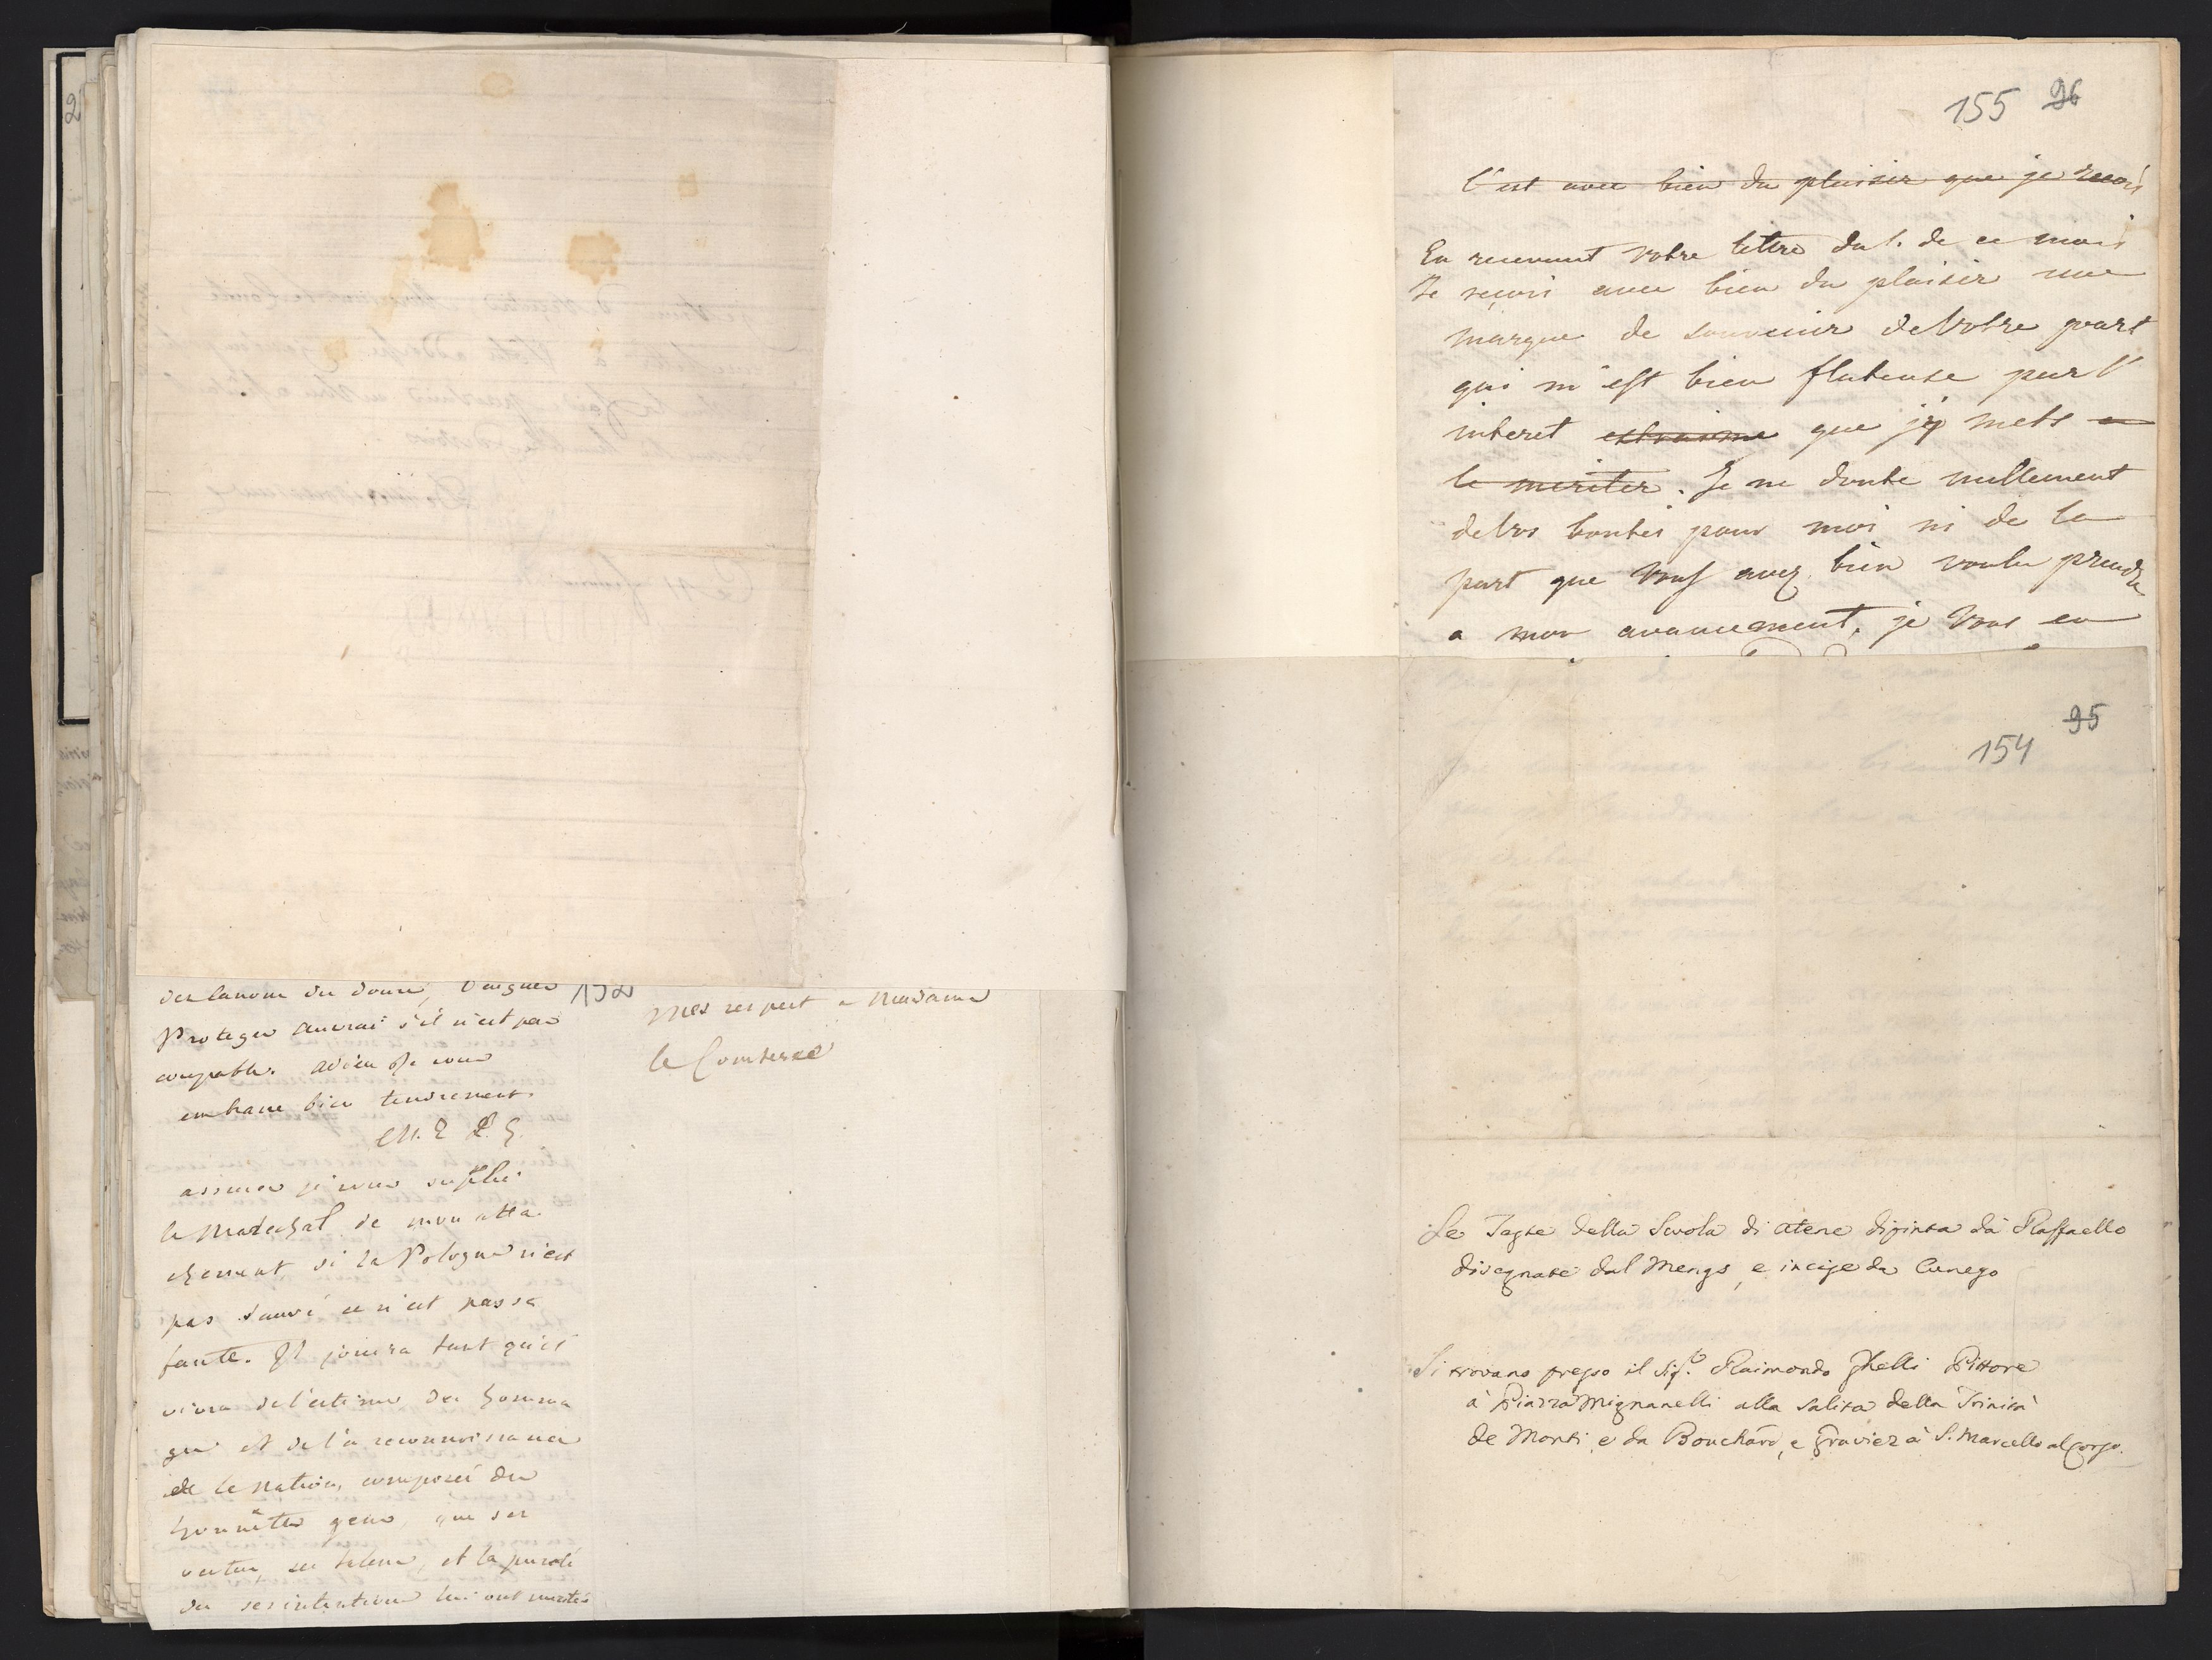 des canons die donné, Daignés
Proteger Ancrai s'il n'est pas
coupable. adieu Je vous
embrasse bien tendrement.
assurez je vous suplie
le Marechal de mon atta
chement si la Pologne n'est
pas sauvé ce n'est pas sa
faute. Il jouira tant qu'il
vivra de l'estime des homma
ges et de la reconnoissance
de la nation, composée des
honnêtes gens, que ses
vertus, ses talens, et la pureté
de ses intentions lui ont merités
Mes respect a Madame
la Comtesse
155 96
C'est avec bien du plaisir que je recois
En recevant votre lettre du 1. de ce mois
Je reçois avec bien du plaisir une
marque de souvenir de Votre part
qui m'est bien flateuse par l'
interet extreme que j'y mets a
le meriter. Je ne doute nullement
de Vos bontés pour moi ni de la
part que Vous avez bien voulu prendre
a mon avancement, je Vous en
95
154
Le Teste della Scuola di Atene dipinta dà Raffaello
disegnate dal Mengs, e incise da Cunego
Si trovano presso il Sig.r Raimondo Ghelli Pittore
à Piazza Mignanelli alla Salita della Trinità
de Monti, e da Bouchard, e Gravier à S. Marcello al Corso.